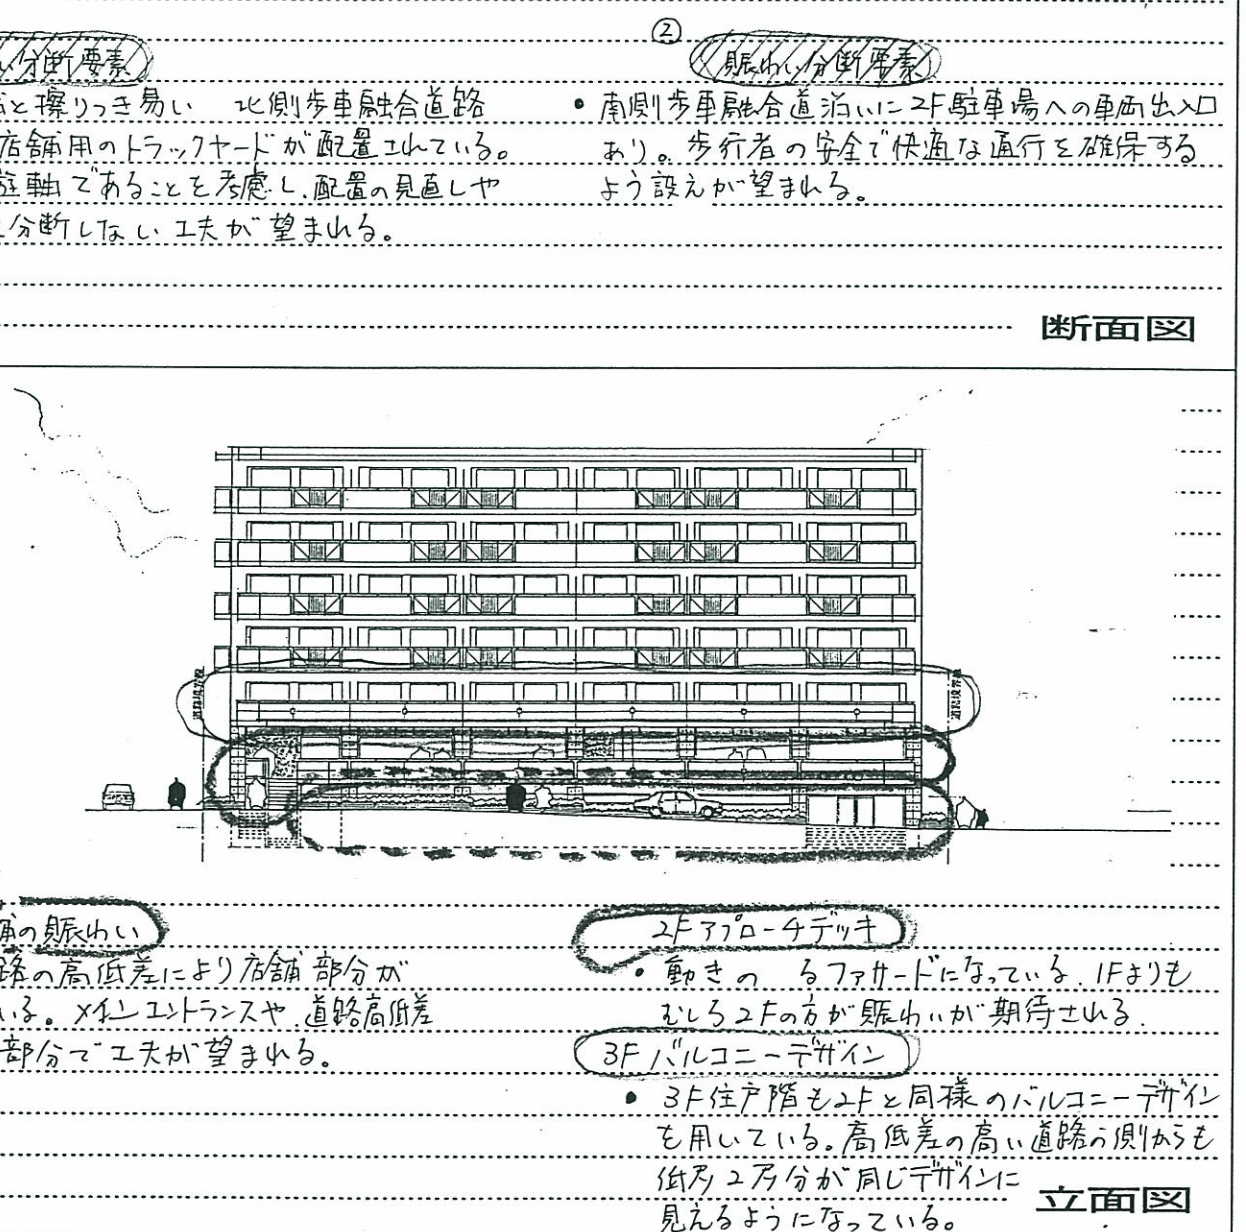 分断要素
と擦りつき易い 北側歩車融合道路
店舗用のトラックヤードが配置されている。
軸であることを考慮し、配置の見直しや
分断しない工夫が望まれる。
②
賑わい分断要素
• 南側歩車融合道沿いに2F駐車場への車両出入口
あり。歩行者の安全で快適な通行を確保する
よう設えが望まれる。
断面図
道路境界線
道路境界線
舗の賑わい
路の高低差により店舗部分が
いる。メインエントランスや、道路高低差
部分で工夫が望まれる。
2Fアプローチデッキ
• 動きの るファサードになっている。1Fよりも
むしろ2Fの方が賑わいが期待される。
3Fバルコニーデザイン
• 3F住戸階も2Fと同様のバルコニーデザイン
を用いている。高低差の高い道路の側からも
低層2層分が同じデザインに
見えるようになっている。
立面図